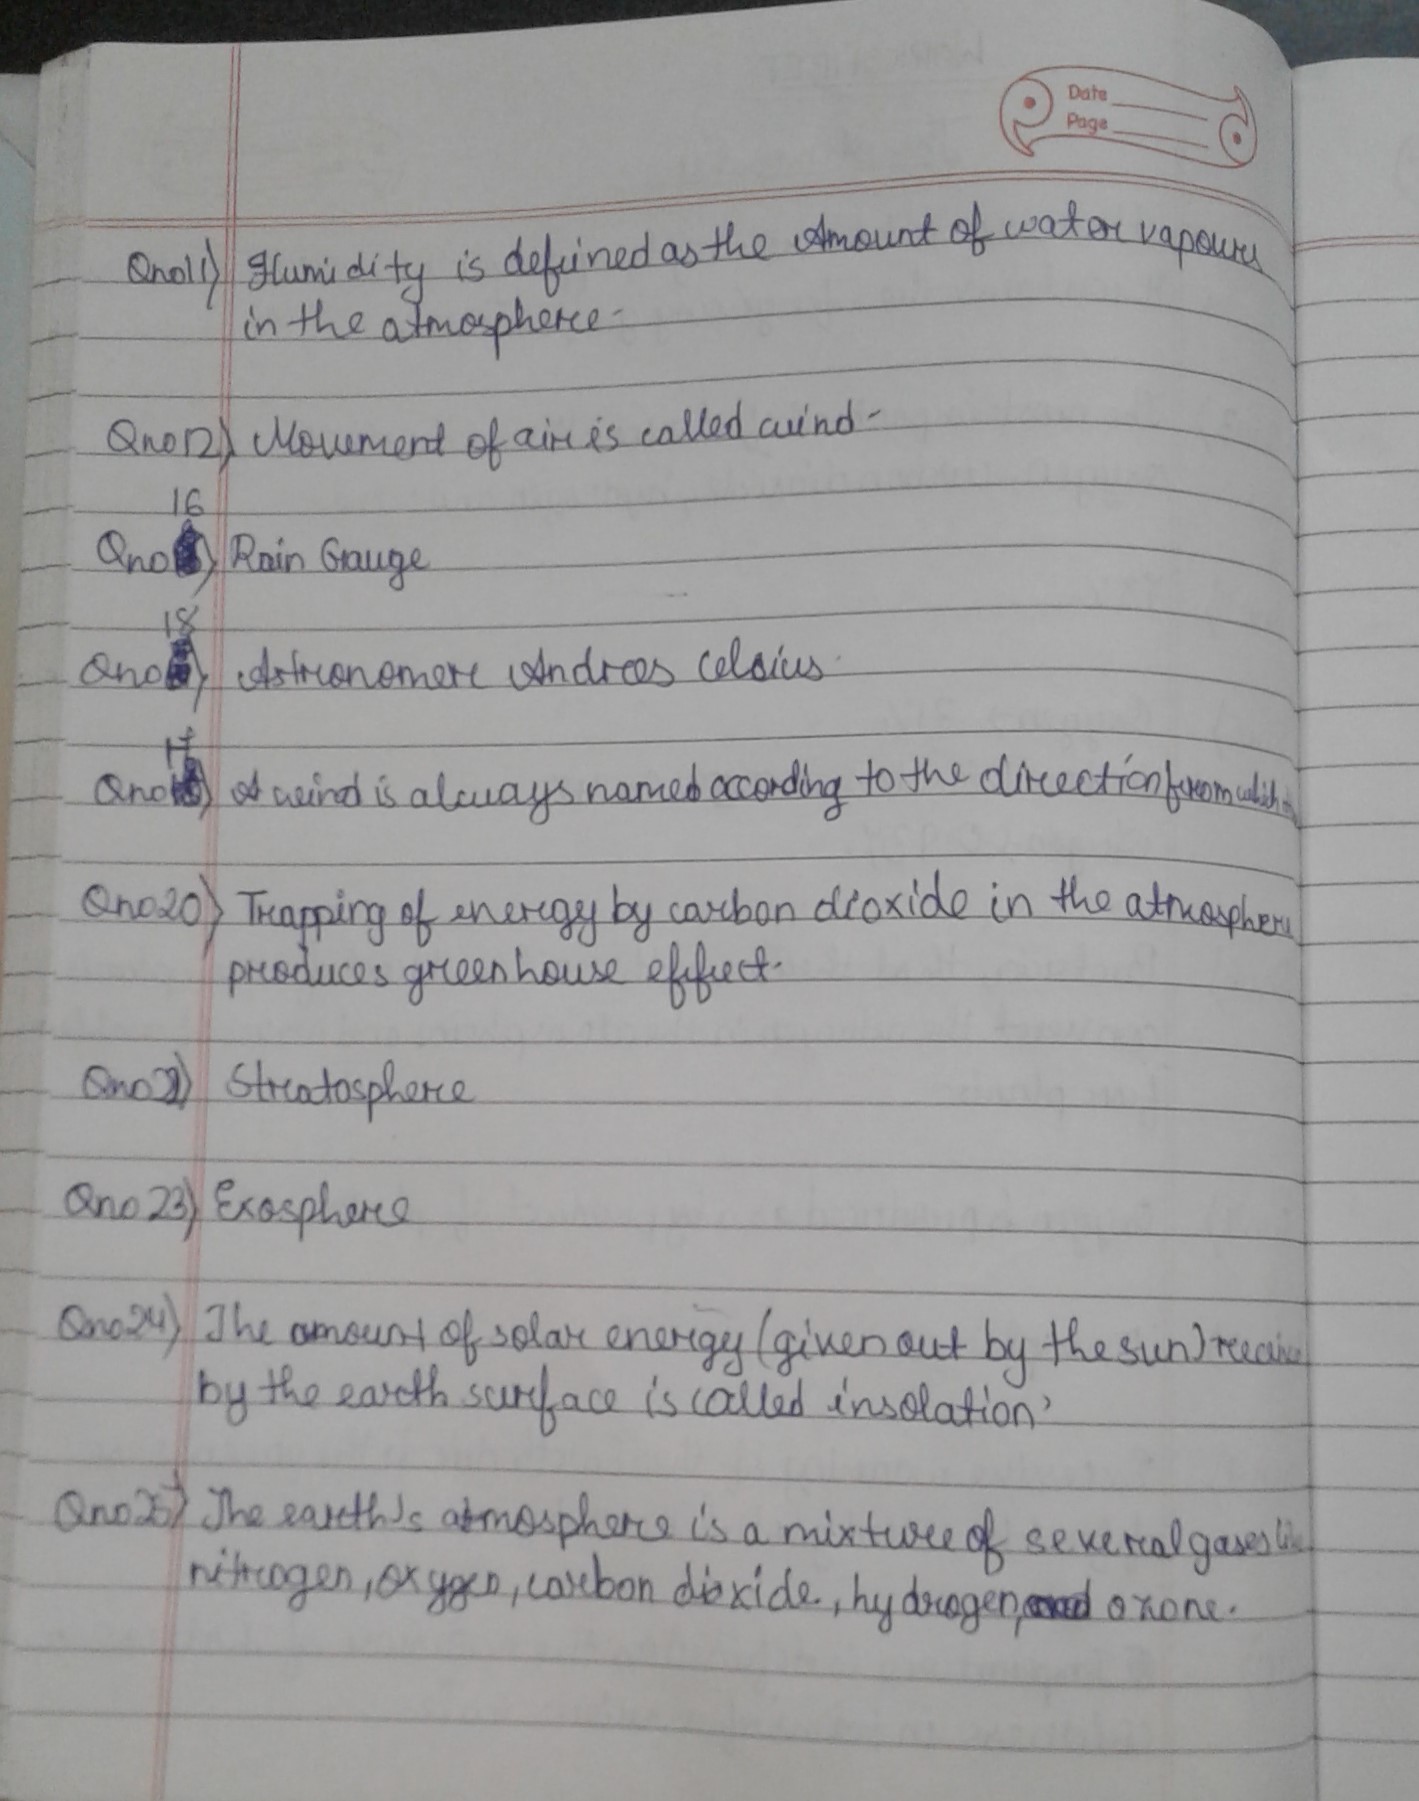 Date
Page
Qno11) Humidity is defined as the Amount of water vapours
in the atmosphere.
Qno12) Movement of air is called wind.
16
Qno ) Rain Gauge
18
Qno ) Astronomer Andres Celsius.
17
Qno ) A wind is always named according to the direction from which
Qno20) Trapping of energy by carbon dioxide in the atmosphere
produces greenhouse effect.
Qno21) Stratosphere
Qno23) Exosphere
Qno24) The amount of solar energy (given out by the sun) receive
by the earth surface is called insolation.
Qno25) The earth's atmosphere is a mixture of several gases like
nitrogen, oxygen, carbon dioxide, hydrogen, and ozone.